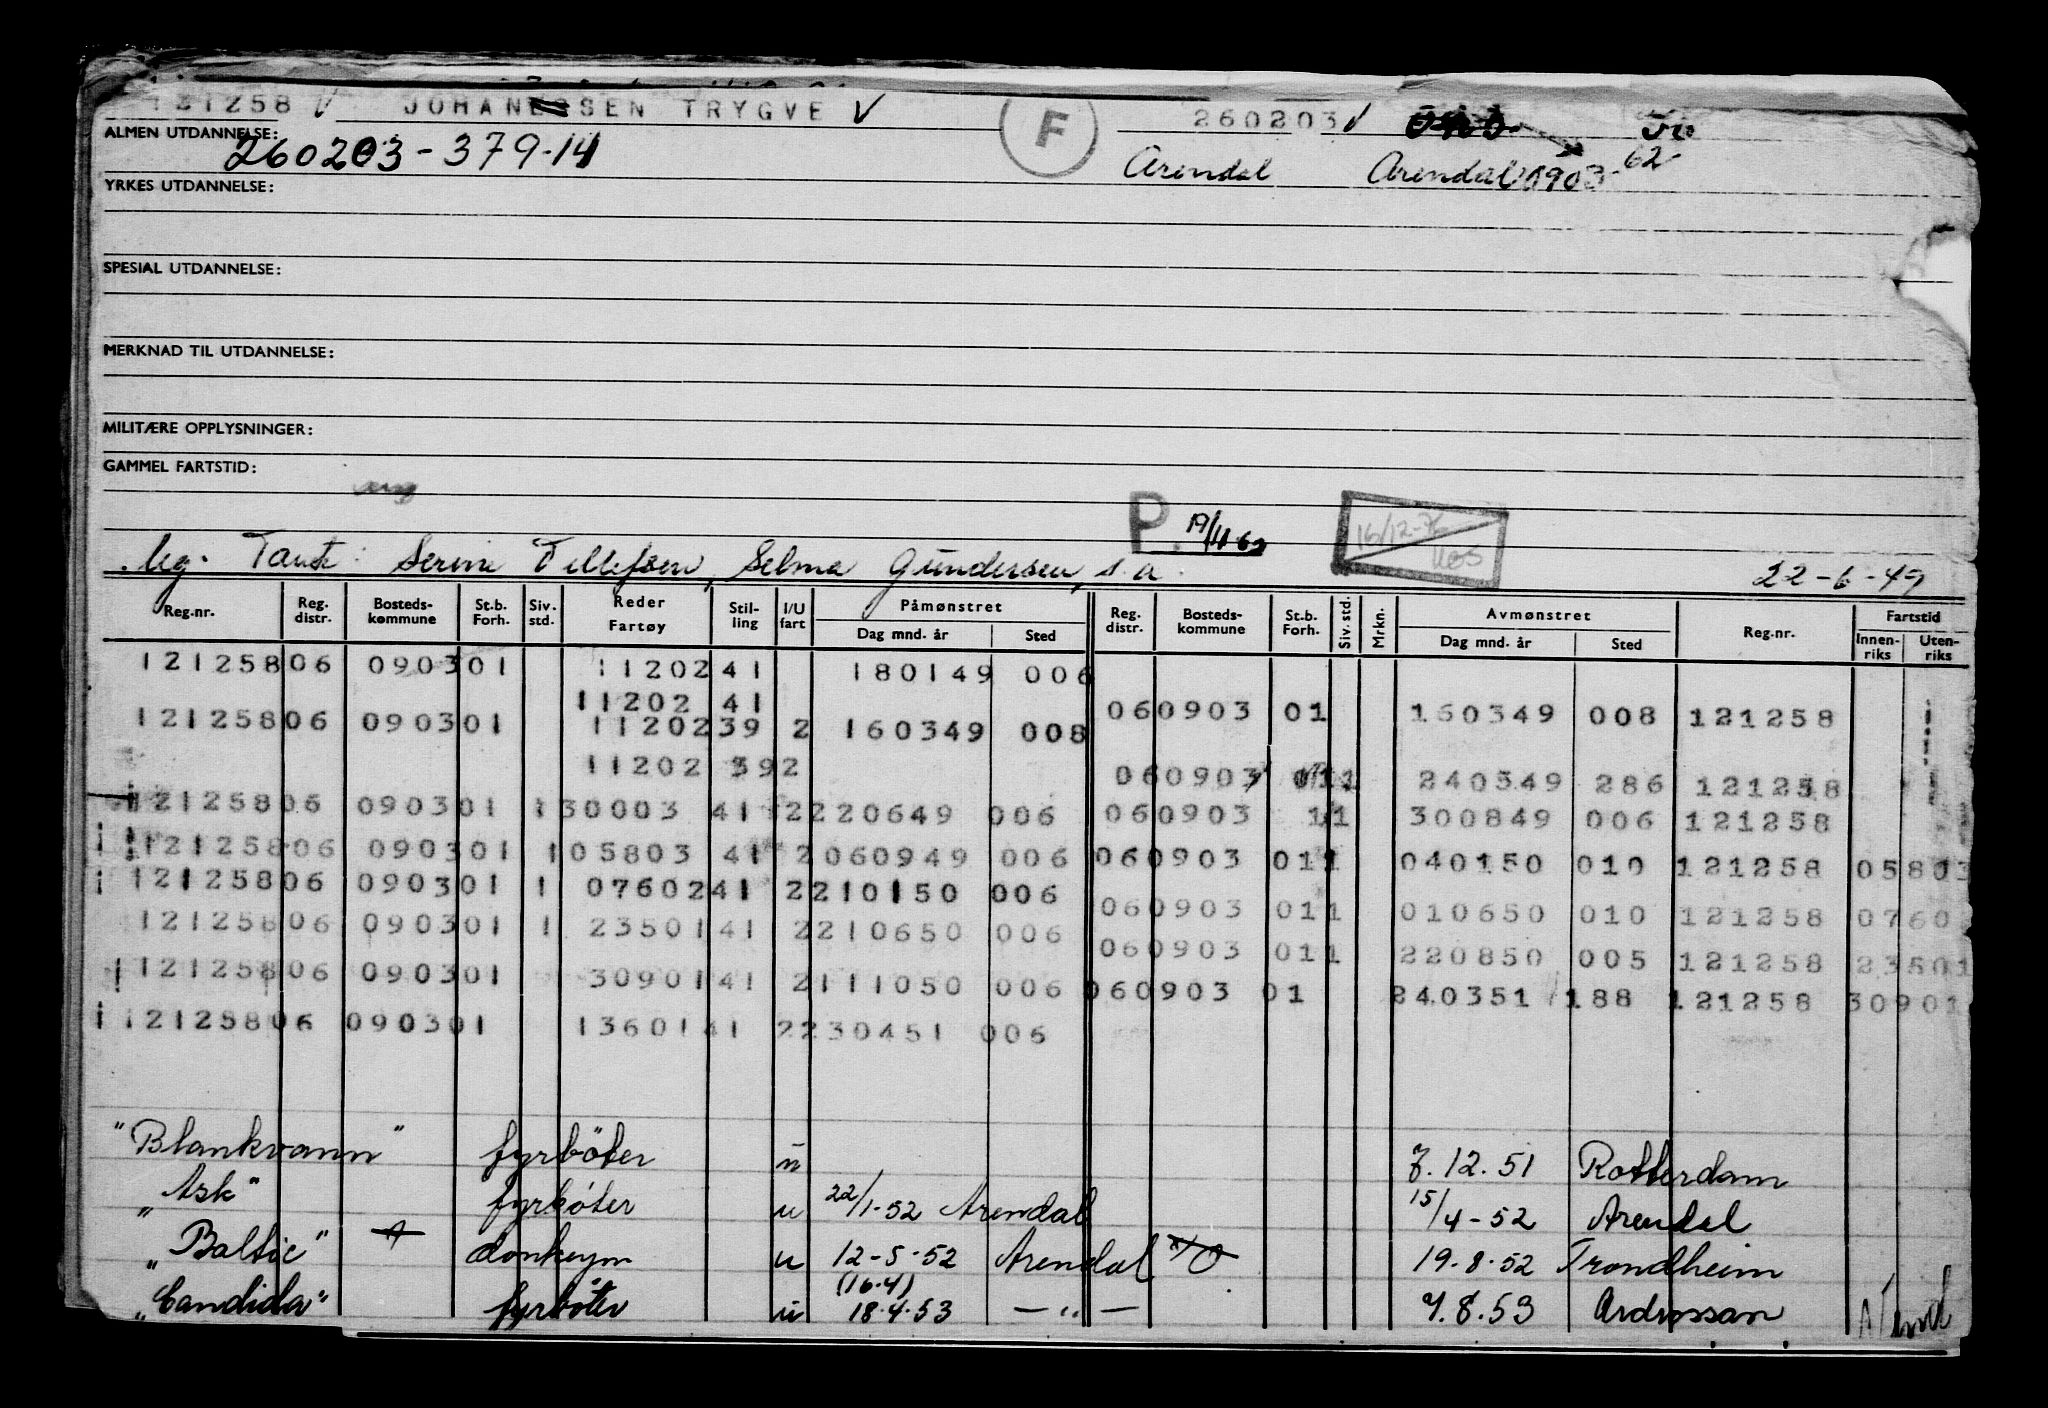 121258 V JOHANSSEN TRYGVE V F 260203 V
ALMEN UTDANNELSE: 260203-379-14 Arendal Arendal 1903- 62
YRKES UTDANNELSE:
SPESIAL UTDANNELSE:
MERKNAD TIL UTDANNELSE:
MILITÆRE OPPLYSNINGER:
GAMMEL FARTSTID:
P. 19/11-62 16/12-76
Tante: Serine Tellefsen, Selma Gundersen, s.a. 22-6-49
Reg.nr. Reg. distr. Bosteds-kommune St.b. Forh. Siv. std. Reder Fartøy Stil-ling I/U fart Påmønstret Dag mnd. år Sted Reg. distr. Bosteds-kommune St.b. Forh. Siv. std. Mrkn. Avmønstret Dag mnd. år Sted Reg.nr. Fartstid Innen-riks Uten-riks
121258 06 0903 01 11202 41 180149 006
11202 41 06 0903 01 160349 008 121258
121258 06 0903 01 11202 39 2 160349 008
11202 39 2 06 0903 01 1 240349 286 121258
121258 06 0903 01 1 30003 41 2 220649 006 06 0903 1 1 300849 006 121258
121258 06 0903 01 1 05803 41 2 060949 006 06 0903 01 1 040150 010 121258 05803
121258 06 0903 01 1 07602 41 2 210150 006 06 0903 01 1 010650 010 121258 0760
121258 06 0903 01 1 23501 41 2 210650 006 06 0903 01 1 220850 005 121258 23501
121258 06 0903 01 30901 41 2 111050 006 06 0903 01 240351 188 121258 30901
121258 06 0903 01 13601 41 2 230451 006
"Blankvann" fyrbøter u 7.12.51 Rotterdam
"Ask" fyrbøter u 22/1-52 Arendal 15/4-52 Arendal
"Baltic" donkeym u 12-5-52 Arendal 19.8.52 Trondheim
(16.4)
"Candida" fyrbøter u 18.4.53 — " — 7.8.53 Ardrossan